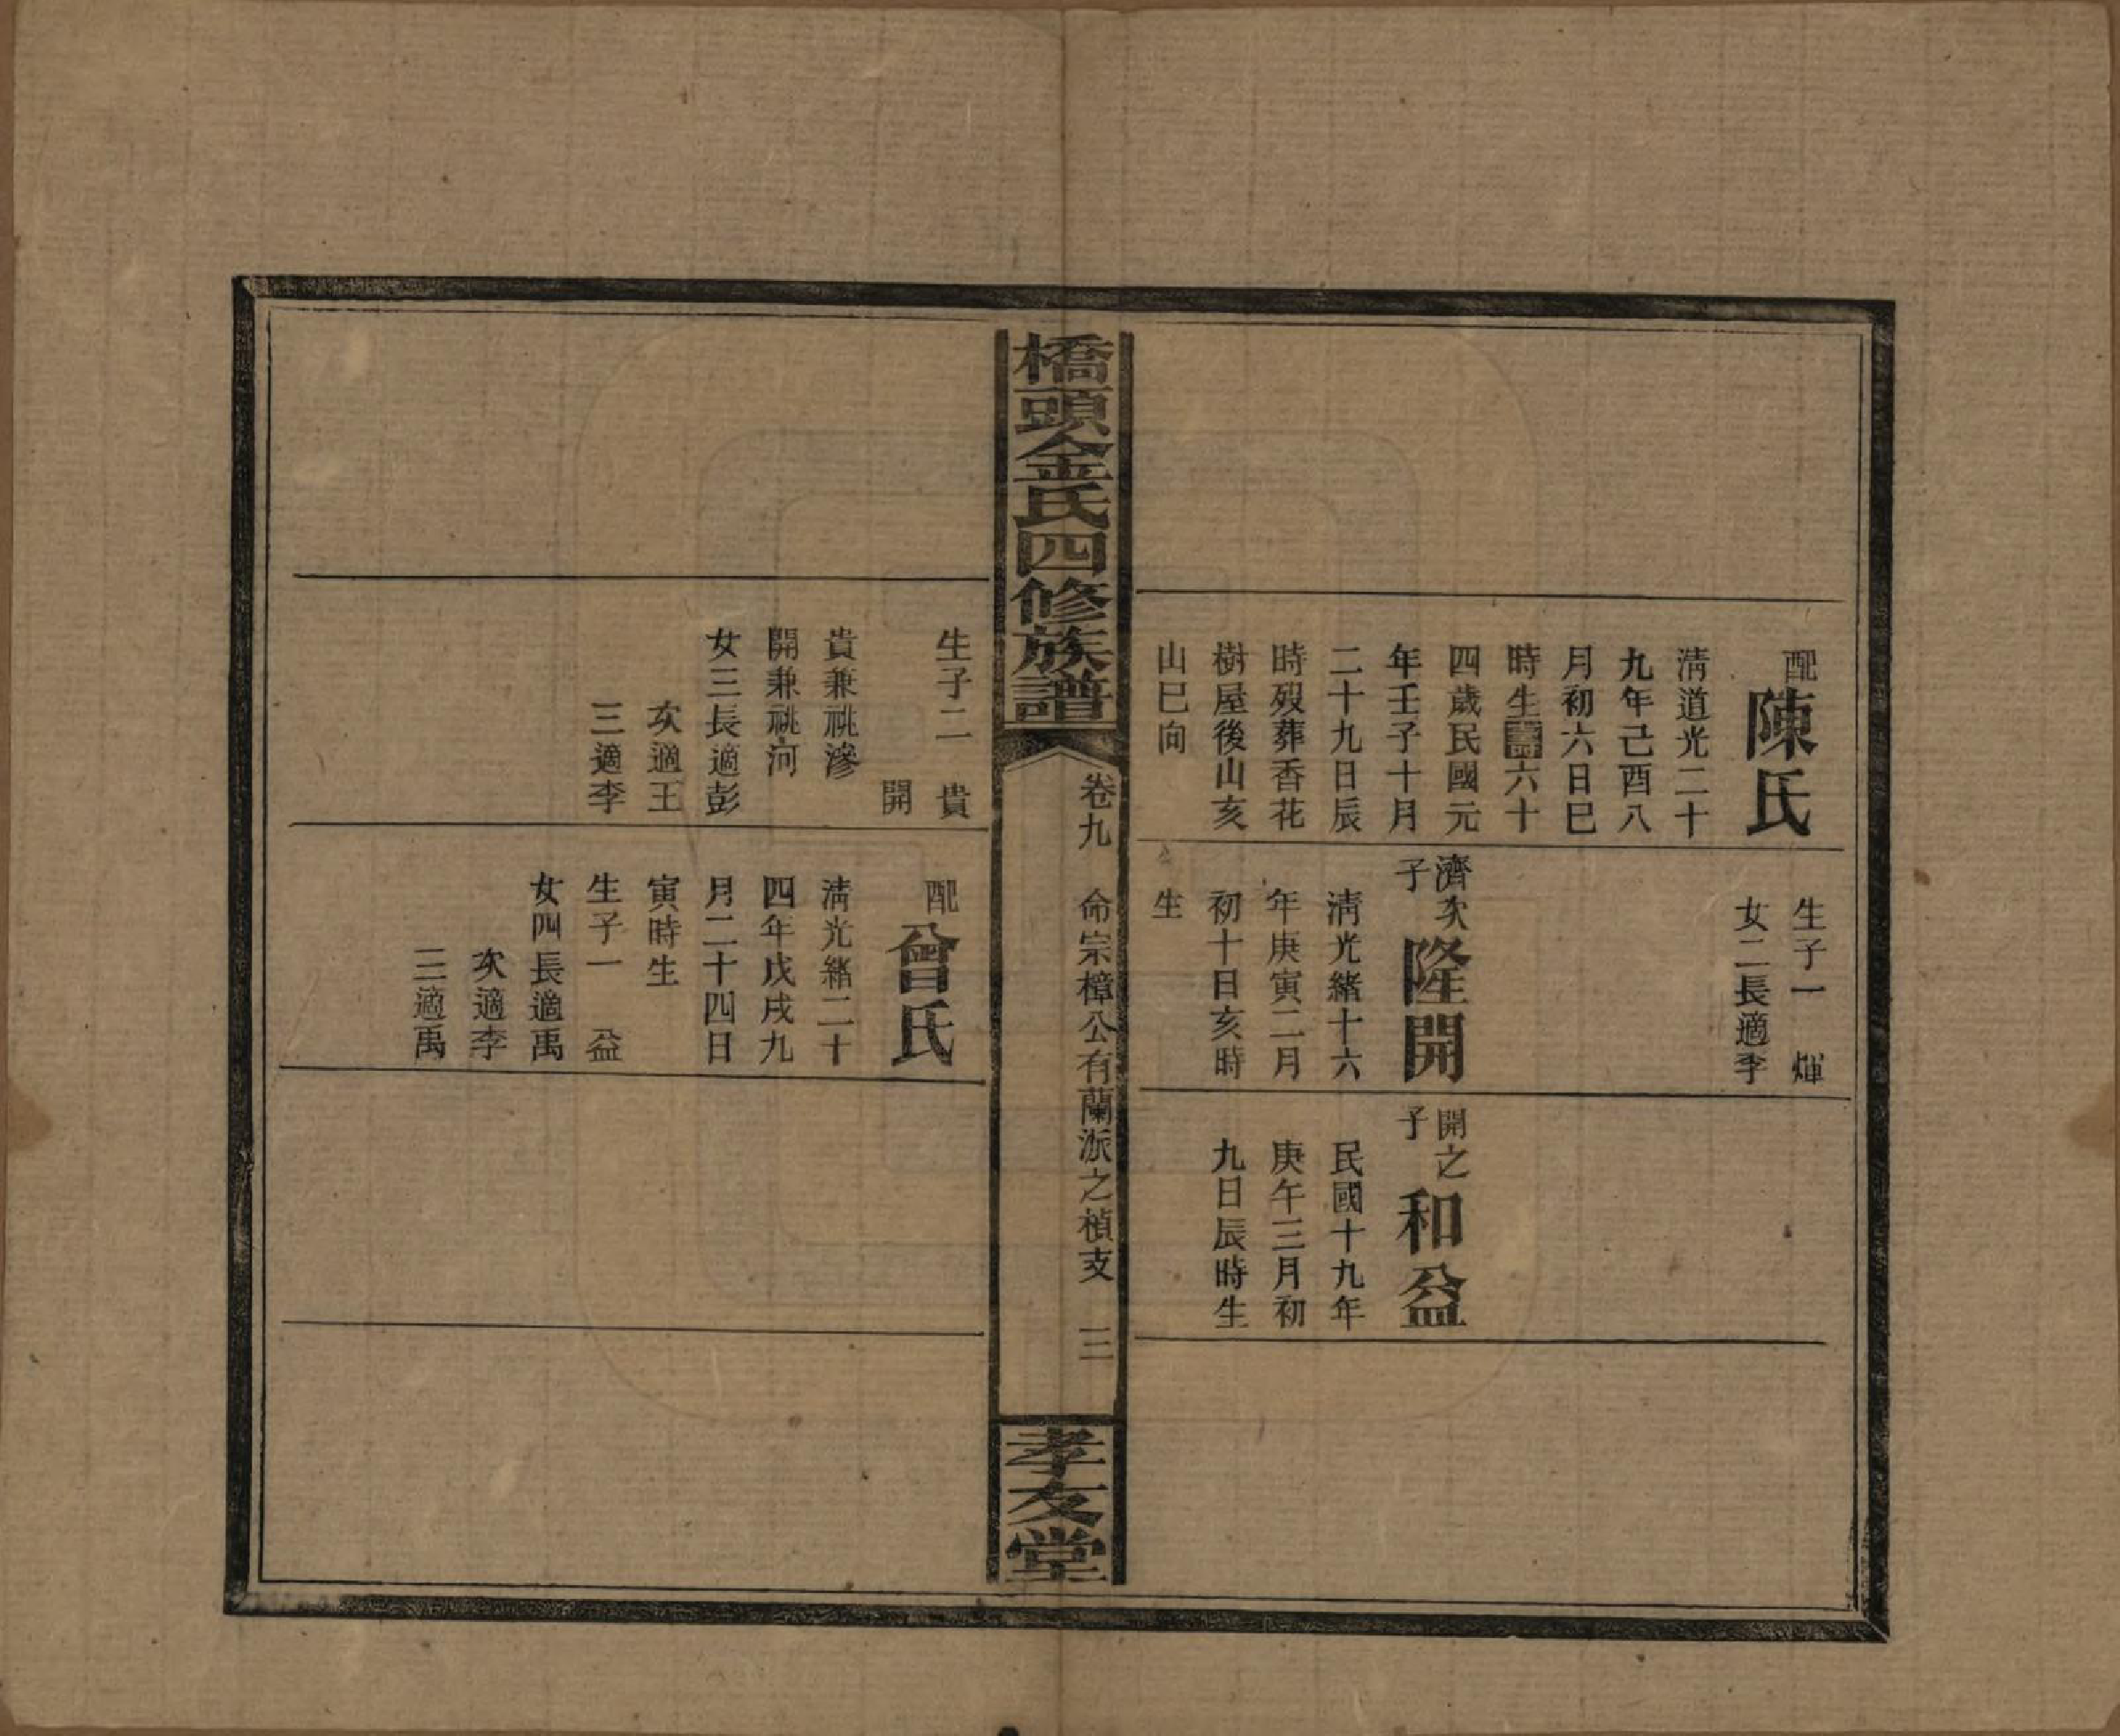 配陳氏
淸道光二十
九年己酉八
月初六日巳
時生壽六十
四歲民國元
年壬子十月
二十九日辰
時歿葬香花
樹屋後山亥
山巳向
生子一　煇
女二長適李
濟次
子
隆開
淸光緒十六
年庚寅二月
初十日亥時
生
開之
子
和益
民國十九年
庚午三月初
九日辰時生
橋頭金氏四修族譜
卷九　命宗樟公有蘭派之楨支　三
孝友堂
生子二　貴
開
貴兼祧滲
開兼祧河
女三長適彭
次適王
三適李
配曾氏
淸光緒二十
四年戊戌九
月二十四日
寅時生
生子一　益
女四長適禹
次適李
三適禹